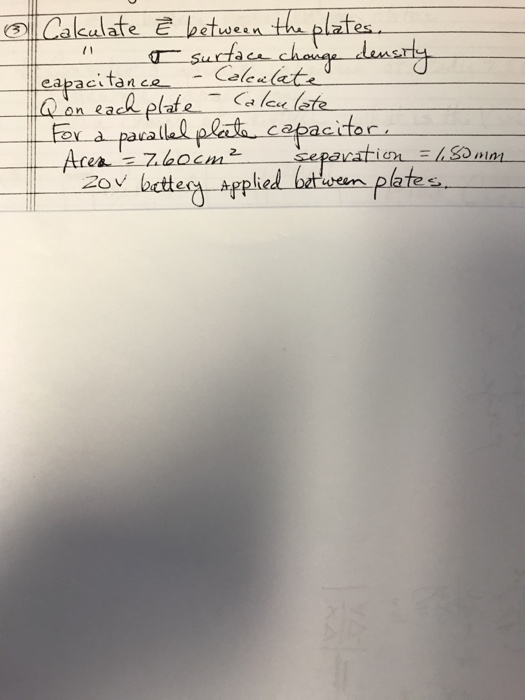 ③ Calculate E⃗ between the plates.
" σ surface change density
capacitance - Calculate
Q on each plate - Calculate
For a parallel plate capacitor.
Area = 7.60cm² separation = 1.80mm
20V battery Applied between plates.